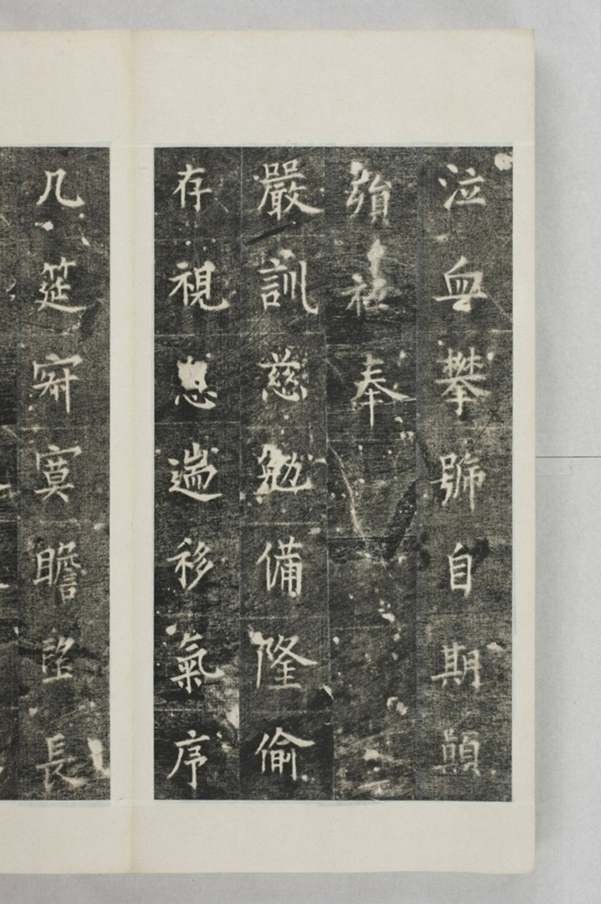 泣血攀號自期顛
殞祗奉
嚴訓慈勉備隆偷
存視息遄移氣序
几筵寂寞瞻望長